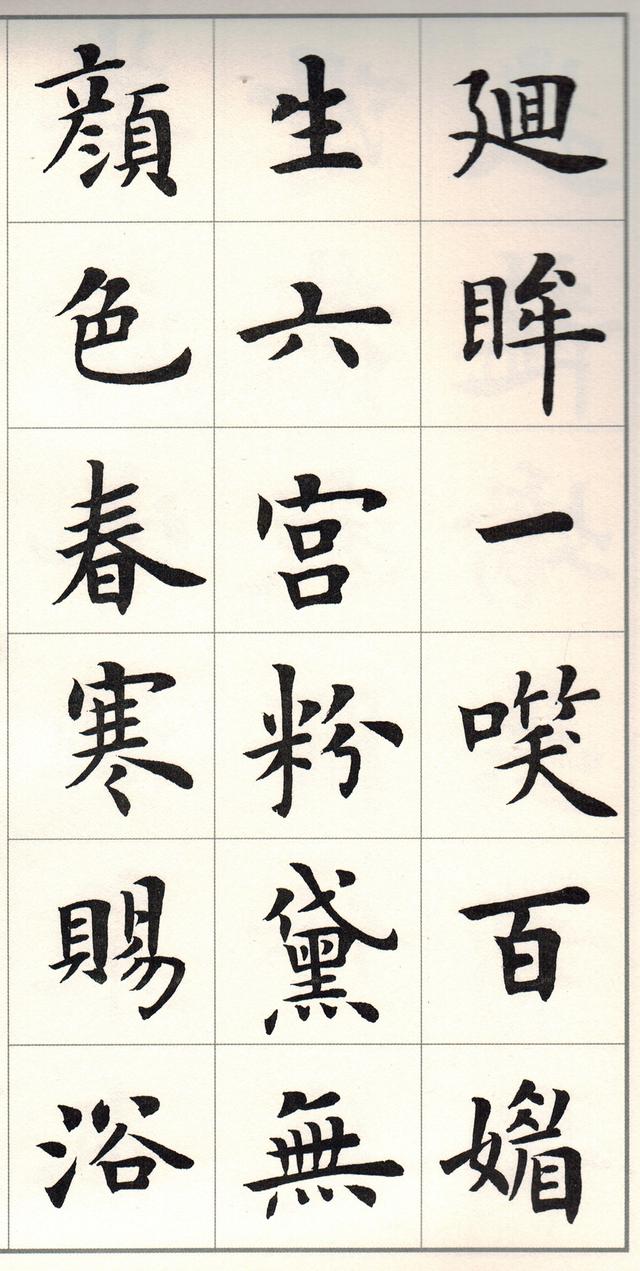 廻眸一㗛百媚
生六宮粉黛無
顔色春寒賜浴